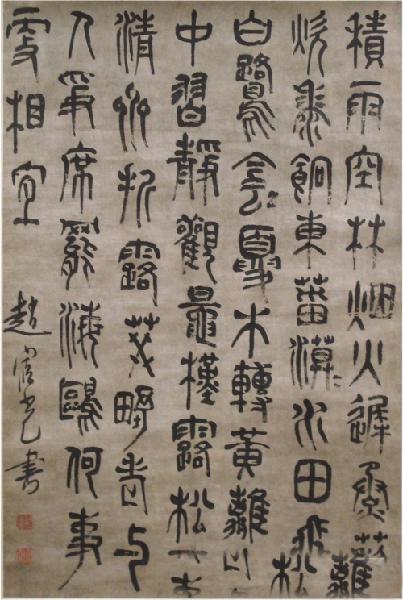 積雨空林烟火遲蒸藜
炊黍餉東菑漠水田飛
白鷺陰夏木轉黃離山
中習靜觀朝槿露松下
清齋折露葵野老与
人爭席罷海鷗何事
相
趙宧光書